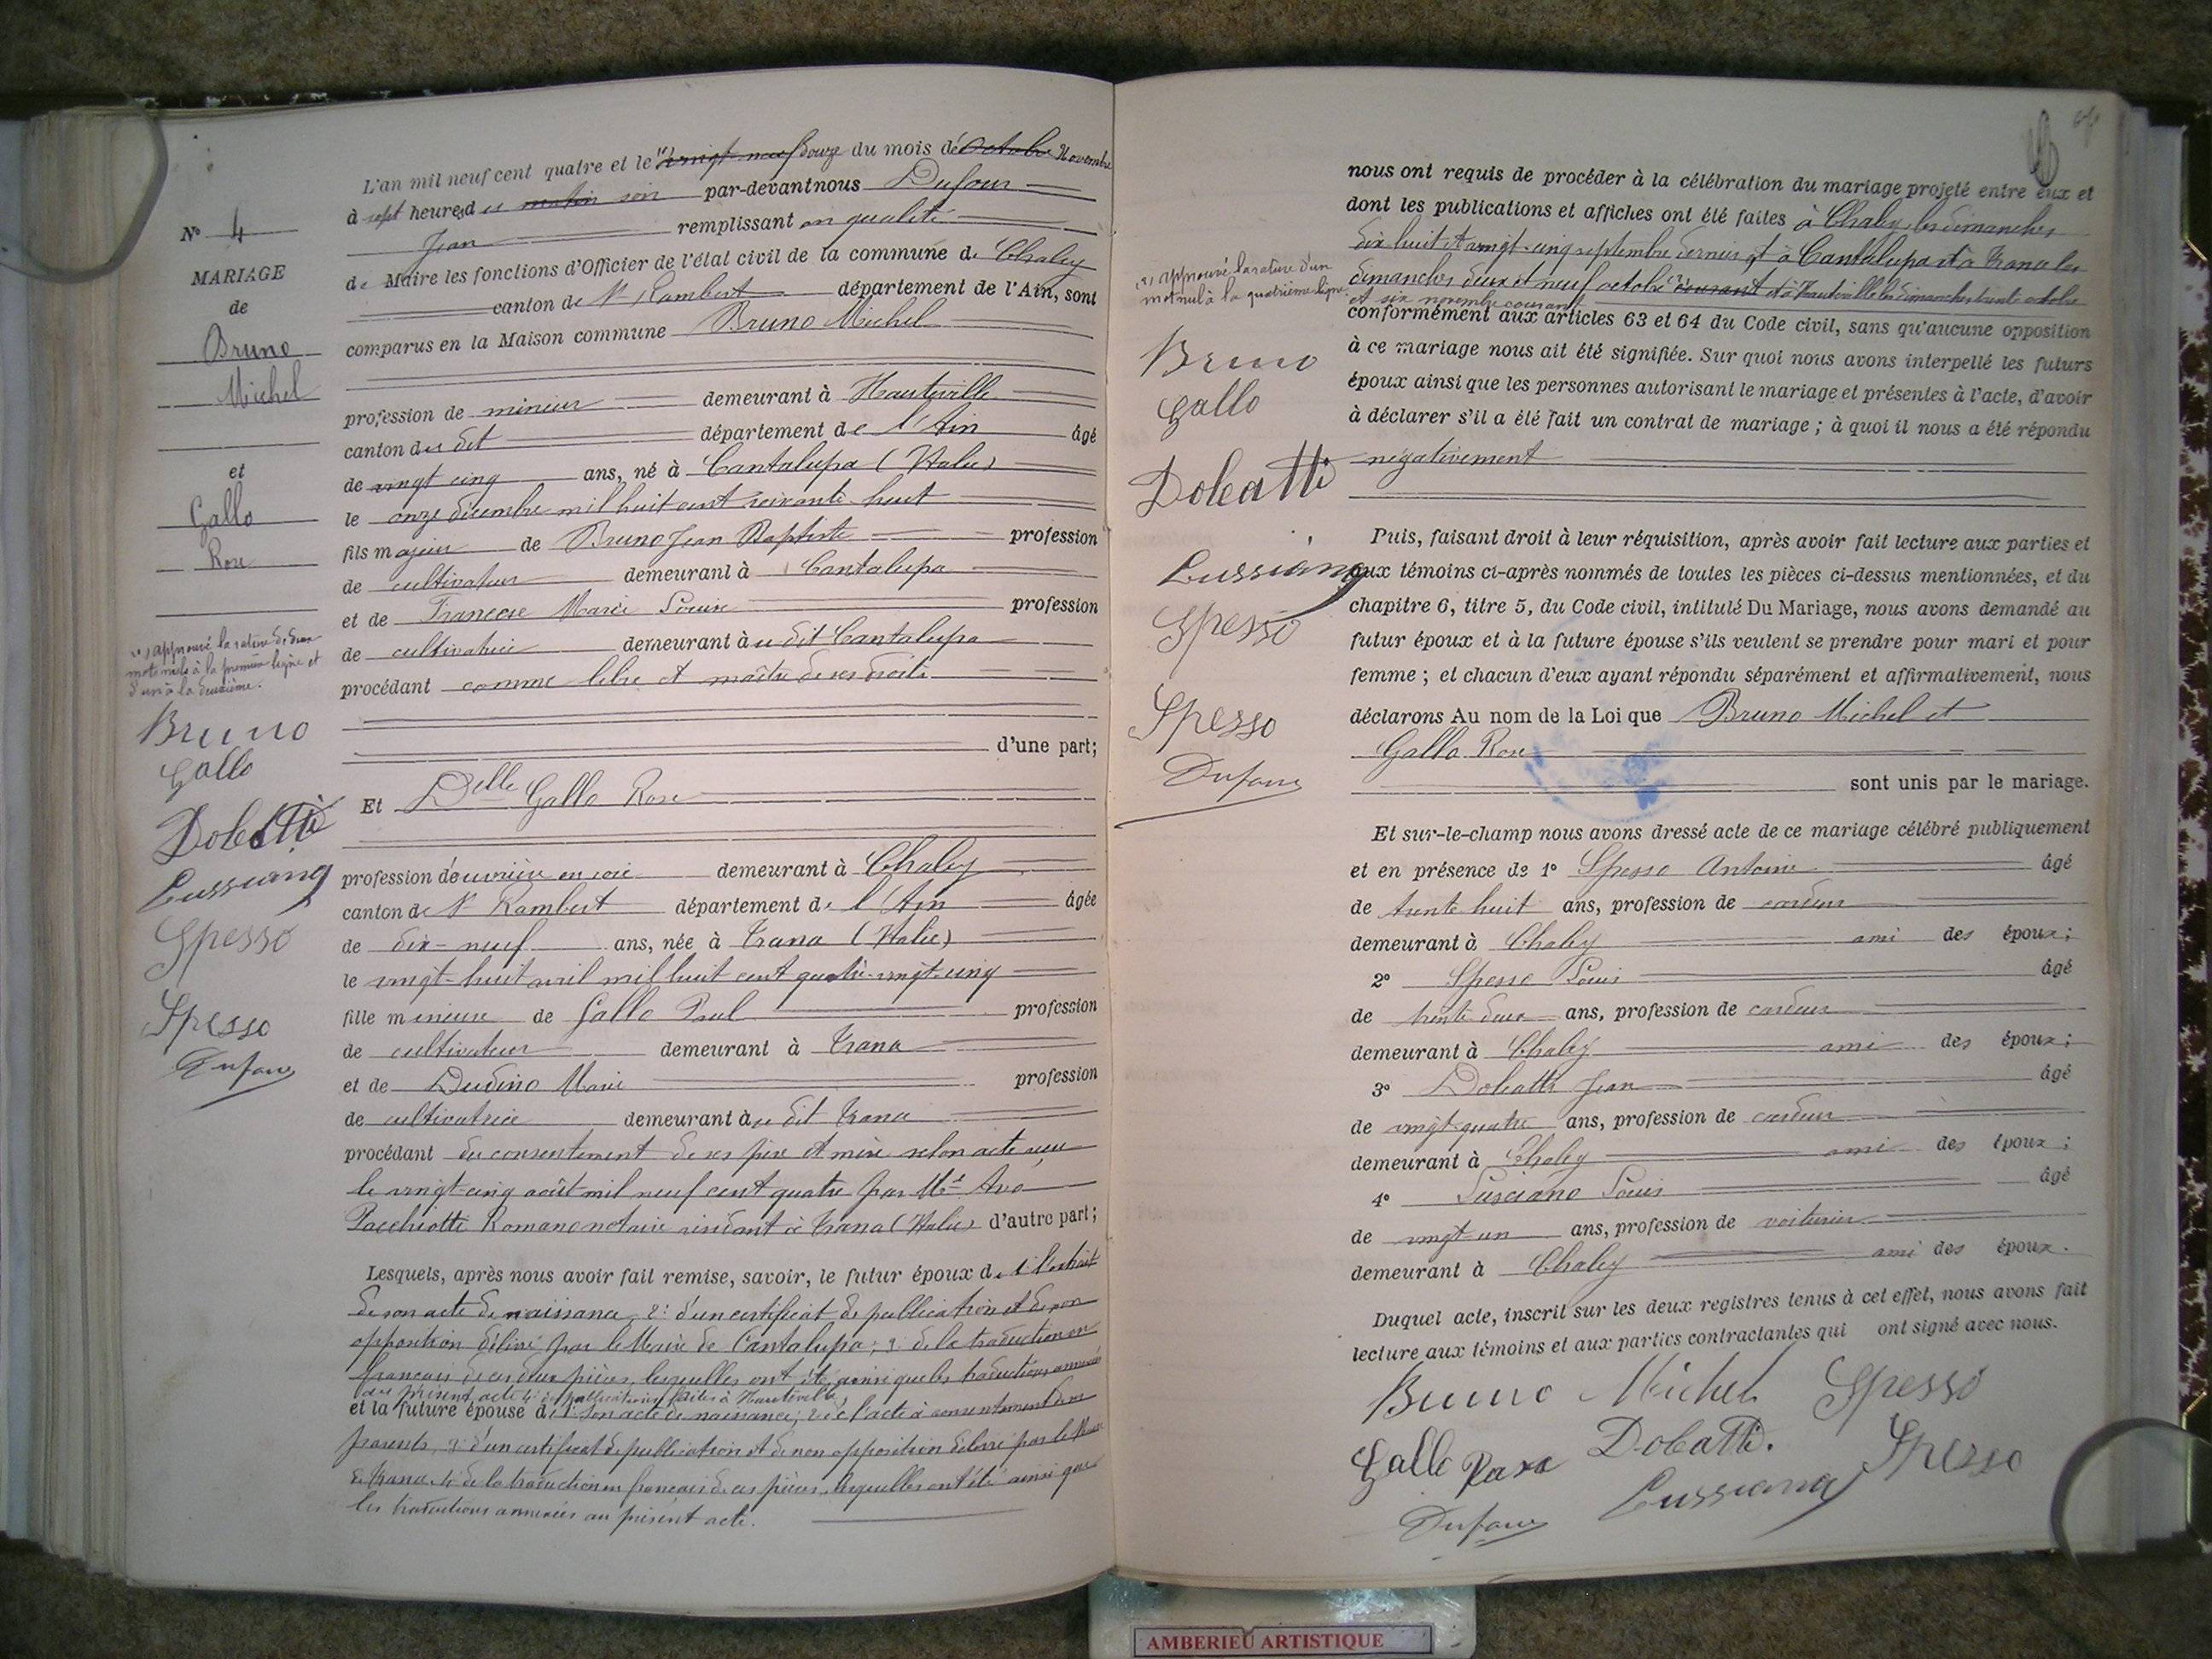 L'an mil neuf cent quatre et le (1) vingt-neuf douze du mois de Octobre Novembre
à sept heures du matin soir par-devant nous Dufour
Jean remplissant en qualité
de Maire les fonctions d'Officier de l'état civil de la commune de Chaley
canton de St Rambert département de l'Ain, sont
comparus en la Maison commune Bruno Michel
profession de mineur demeurant à Hauteville
canton du dit département de l'Ain âgé
de vingt cinq ans, né à Cantalupa (Italie)
le onze décembre mil huit cent soixante huit
fils majeur de Bruno Jean Baptiste profession
de cultivateur demeurant à Cantalupa
et de Marie Louise profession
de cultivatrice demeurant au dit Cantalupa
procédant comme libre et maître de ses droits
d'une part;
Et Delle Gallo Rose
profession d'ouvrière en soie demeurant à Chaley
canton de St Rambert département de l'Ain âgée
de dix-neuf ans, née à Trana (Italie)
le vingt-huit avril mil huit cent quatre-vingt-cinq
fille mineure de Gallo Paul profession
de cultivateur demeurant à Trana
et de Dudino Marie profession
de cultivatrice demeurant au dit Trana
procédant du consentement de ses père et mère selon acte reçu
le vingt-cinq août mil neuf cent quatre par Me Avo
Pacchiotti Romano notaire résidant à Trana (Italie) d'autre part;
Lesquels, après nous avoir fait remise, savoir, le futur époux de 1° l'extrait
de son acte de naissance 2° d'un certificat de publication et de non
opposition délivré par le Maire de Cantalupa; 3° de la traduction en
français de ces deux pièces, lesquelles ont été ainsi que les traductions annexées
au présent acte 4° de publications faites à Hauteville
et la future épouse de 1° son acte de naissance; 2° de l'acte de consentement de ses
parents 3° d'un certificat de publication et de non opposition délivré par le Maire
de Trana 4° de la traduction en français de ces pièces, lesquelles ont été ainsi que
les traductions annexées au présent acte.
N° 4
MARIAGE
de
Bruno
Michel
et
Gallo
Rose
(1) approuvé la rature de deux
mots nuls à la première ligne et
d'un à la deuxième.
Bruno
Gallo
Dobatti
Lussiana
Spesso
Spesso
Dufour
nous ont requis de procéder à la célébration du mariage projeté entre eux et
dont les publications et affiches ont été faites à Chaley les dimanches
dix huit et vingt-cinq septembre dernier et à Cantalupa et à Trana les
dimanches deux et neuf octobre (2) courant et à Hauteville les dimanches trente octobre
et six novembre courant
conformément aux articles 63 et 64 du Code civil, sans qu'aucune opposition
à ce mariage nous ait été signifiée. Sur quoi nous avons interpellé les futurs
époux ainsi que les personnes autorisant le mariage et présentes à l'acte, d'avoir
à déclarer s'il a été fait un contrat de mariage; à quoi il nous a été répondu
négativement
Puis, faisant droit à leur réquisition, après avoir fait lecture aux parties et
aux témoins ci-après nommés de toutes les pièces ci-dessus mentionnées, et du
chapitre 6, titre 5, du Code civil, intitulé Du Mariage, nous avons demandé au
futur époux et à la future épouse s'ils veulent se prendre pour mari et pour
femme; et chacun d'eux ayant répondu séparément et affirmativement, nous
déclarons Au nom de la Loi que Bruno Michel et
Gallo Rose
sont unis par le mariage.
Et sur-le-champ nous avons dressé acte de ce mariage célébré publiquement
et en présence de 1° Spesso Antoine âgé
de trente huit ans, profession de cardeur
demeurant à Chaley ami des époux;
2° Spesso Louis âgé
de trente deux ans, profession de cardeur
demeurant à Chaley ami des époux;
3° Dobatti Jean âgé
de vingt-quatre ans, profession de cardeur
demeurant à Chaley ami des époux;
4° Lussiano Louis âgé
de vingt-un ans, profession de voiturier
demeurant à Chaley ami des époux.
Duquel acte, inscrit sur les deux registres tenus à cet effet, nous avons fait
lecture aux témoins et aux parties contractantes qui ont signé avec nous.
Bruno Michel Spesso
Gallo Rosa Dobatti. Spesso
Dufour Lussiana
(2) approuvé la rature d'un
mot nul à la quatrième ligne
Bruno
Gallo
Dobatti
Lussiana
Spesso
Spesso
Dufour
AMBERIEU ARTISTIQUE